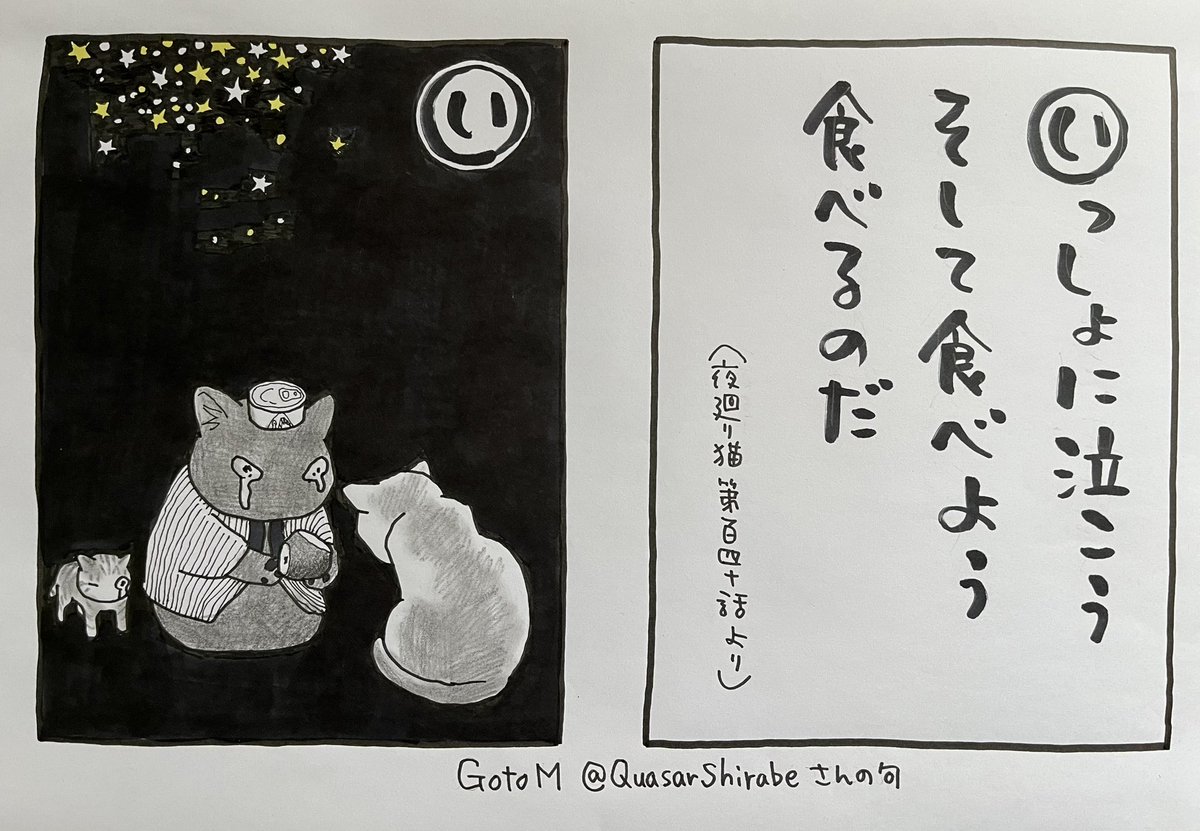 い
いっしょに泣こう
そして食べよう
食べるのだ
(夜廻り猫 第百四十話より)
GotoM @QuasarShirabe さんの句